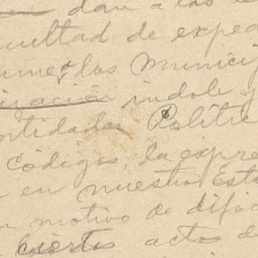 dan a las
facultad de expe
los Municip
indole y
entidades Polític
códigos, la expre
en nuestro Esta
motivo de difo
ciertos actos d